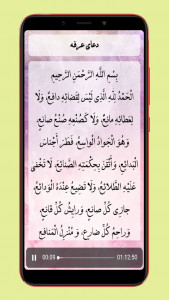 دعای عرفه
بِسْمِ اللَّهِ الرَّحْمَنِ الرَّحِيمِ
الْحَمْدُ لِلَّهِ الَّذِي لَيْسَ لِقَضَائِهِ دَافِعٌ، وَلَا
لِعَطَائِهِ مَانِعٌ، وَلَا كَصُنْعِهِ صُنْعُ صَانِعٍ،
وَهُوَ الْجَوَادُ الْوَاسِعُ، فَطَرَ أَجْنَاسَ
الْبَدَائِعِ، وَأَتْقَنَ بِحِكْمَتِهِ الصَّنَائِعَ، لَا تَخْفَى
عَلَيْهِ الطَّلَائِعُ، وَلَا تَضِيعُ عِنْدَهُ الْوَدَائِعُ،
جَازِي كُلِّ صَانِعٍ، وَرَايِشُ كُلِّ قَانِعٍ،
وَرَاحِمُ كُلِّ ضَارِعٍ، وَمُنْزِلُ الْمَنَافِعِ
00:09 01:12:50